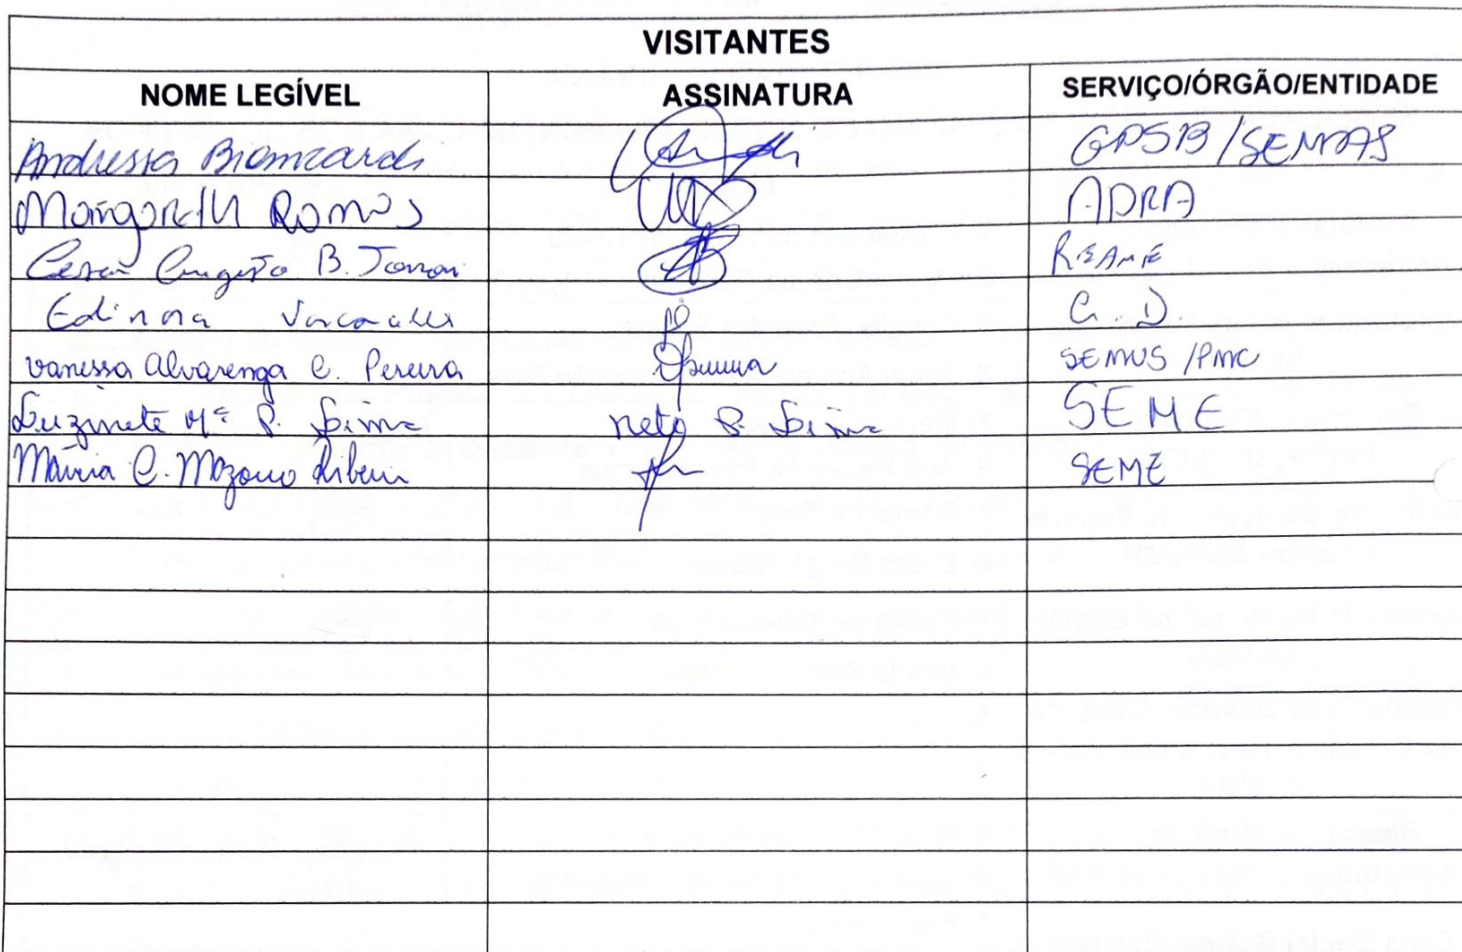 VISITANTES
NOME LEGÍVEL ASSINATURA SERVIÇO/ÓRGÃO/ENTIDADE
Andressa Biancardi GPSB/SEMDAS
Margareth Ramos ADRA
Cesar Augusto B. REAME
Edinora Vasconcellos C. D.
Vanessa Alvarenga C. Pereira SEMUS /PMC
Luzinete Mª P. Lima neto P. Lima SEME
C. SEME